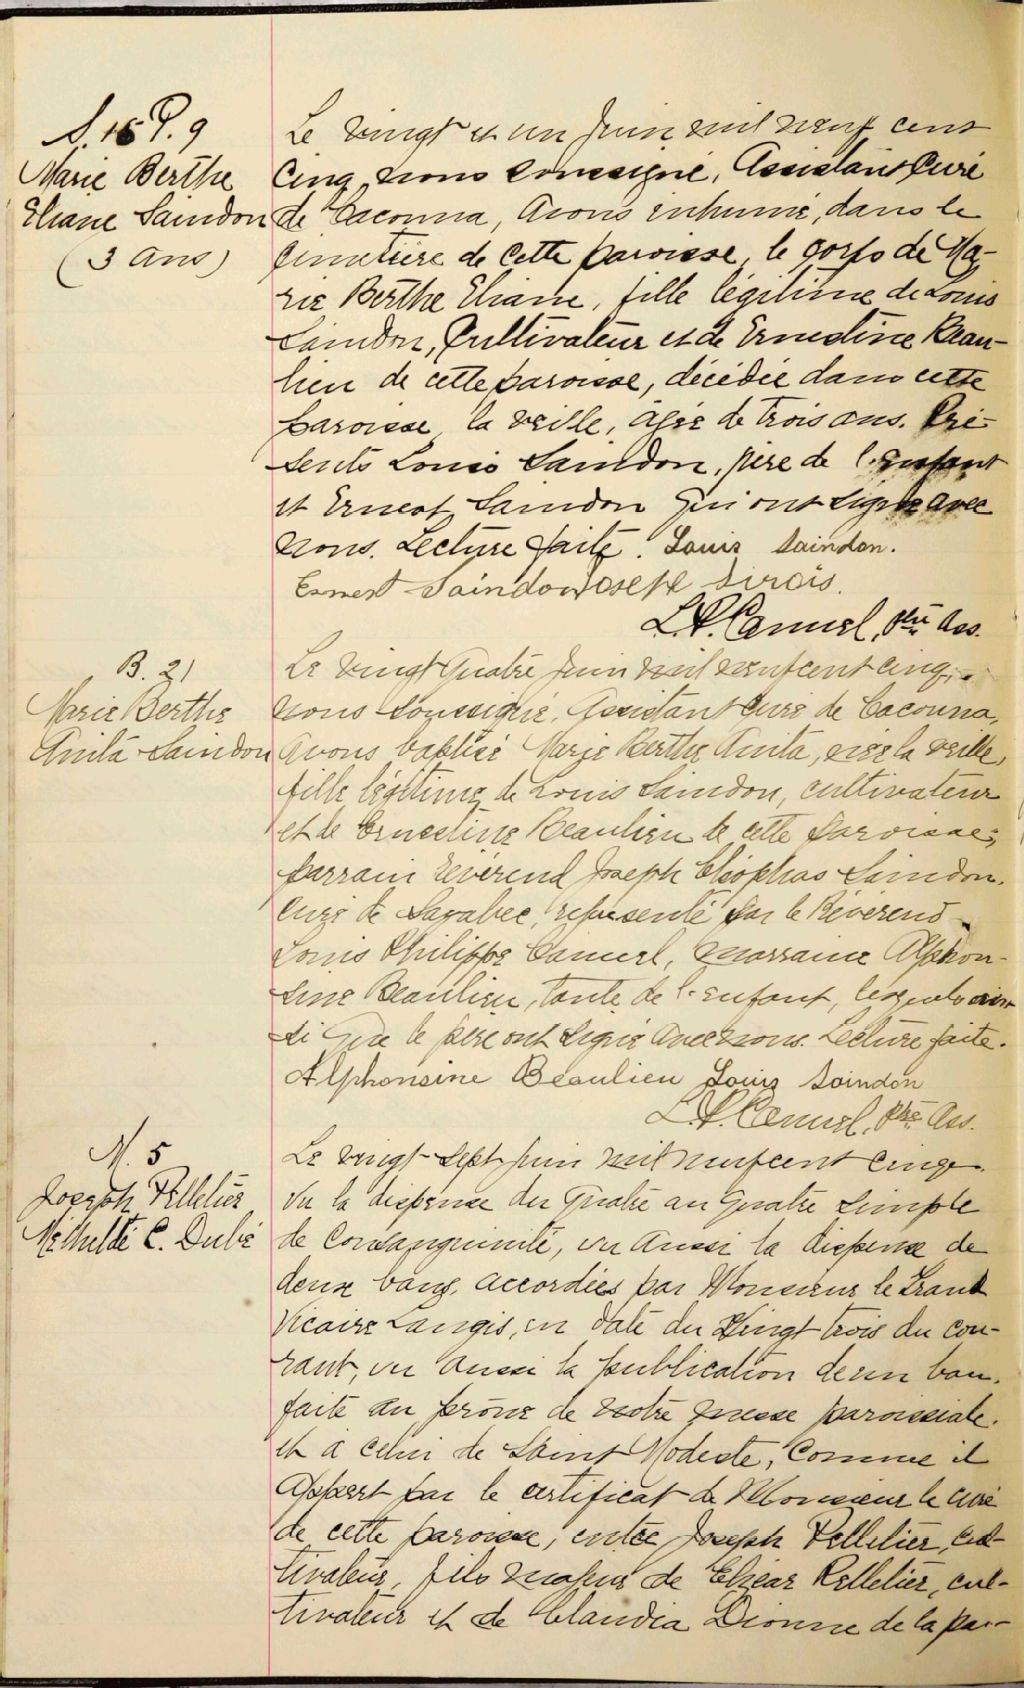 S. 16 P. 9
Marie Berthe
Eliane Saindon
(3 ans)
Le vingt et un Juin mil neuf cent
Cinq nous soussigné, Assistant Curé
de Cacouna, Avons inhumé, dans le
Cimetière de cette paroisse, le corps de Ma-
rie Berthe Eliane, fille légitime de Louis
Saindon, Cultivateur et de Ernestine Beau-
lieu de cette paroisse, décédée dans cette
paroisse la veille, agée de trois ans. Pré-
sents Louis Saindon, père de l'enfant
et Ernest Saindon qui ont signé avec
nous. Lecture faite. Louis Saindon.
Ernest Saindon Joseph Sirois.
L.P. Canuel, Ptre Ass.
B. 21
Marie Berthe
Anita Saindon
Le vingt quatre Juin mil neuf cent cinq,
nous soussigné, Assistant Curé de Cacouna,
Avons baptisé Marie Berthe Anita, née la veille,
fille légitime de Louis Saindon, cultivateur
et de Ernestine Beaulieu de cette paroisse;
parrain Révérend Joseph Cléophas Saindon,
Curé de Sayabec, représenté par le Révérend
Louis Philippe Canuel, marraine Alphon-
sine Beaulieu, tante de l'enfant, lesquels ain-
si que le père ont signé avec nous. Lecture faite.
Alphonsine Beaulieu Louis Saindon
L.P. Canuel, Ptre Ass.
M. 5
Joseph Pelletier
Mathilde C. Dubé
Le vingt-sept Juin mil neuf cent cinq.
Vu la dispense du quatre au quatre simple
de Consanguinité, vu aussi la dispense de
deux bans, accordées par Monsieur le Grand
Vicaire Langis, en date du vingt trois du cou-
rant, vu aussi la publication de un ban,
faite au prône de notre messe paroissiale,
et à celui de Saint Modeste, Comme il
Appert par le certificat de Monsieur le curé
de cette paroisse, entre Joseph Pelletier, cul-
tivateur, fils majeur de Elzéar Pelletier, cul-
tivateur et de Claudia Dionne de la pa-